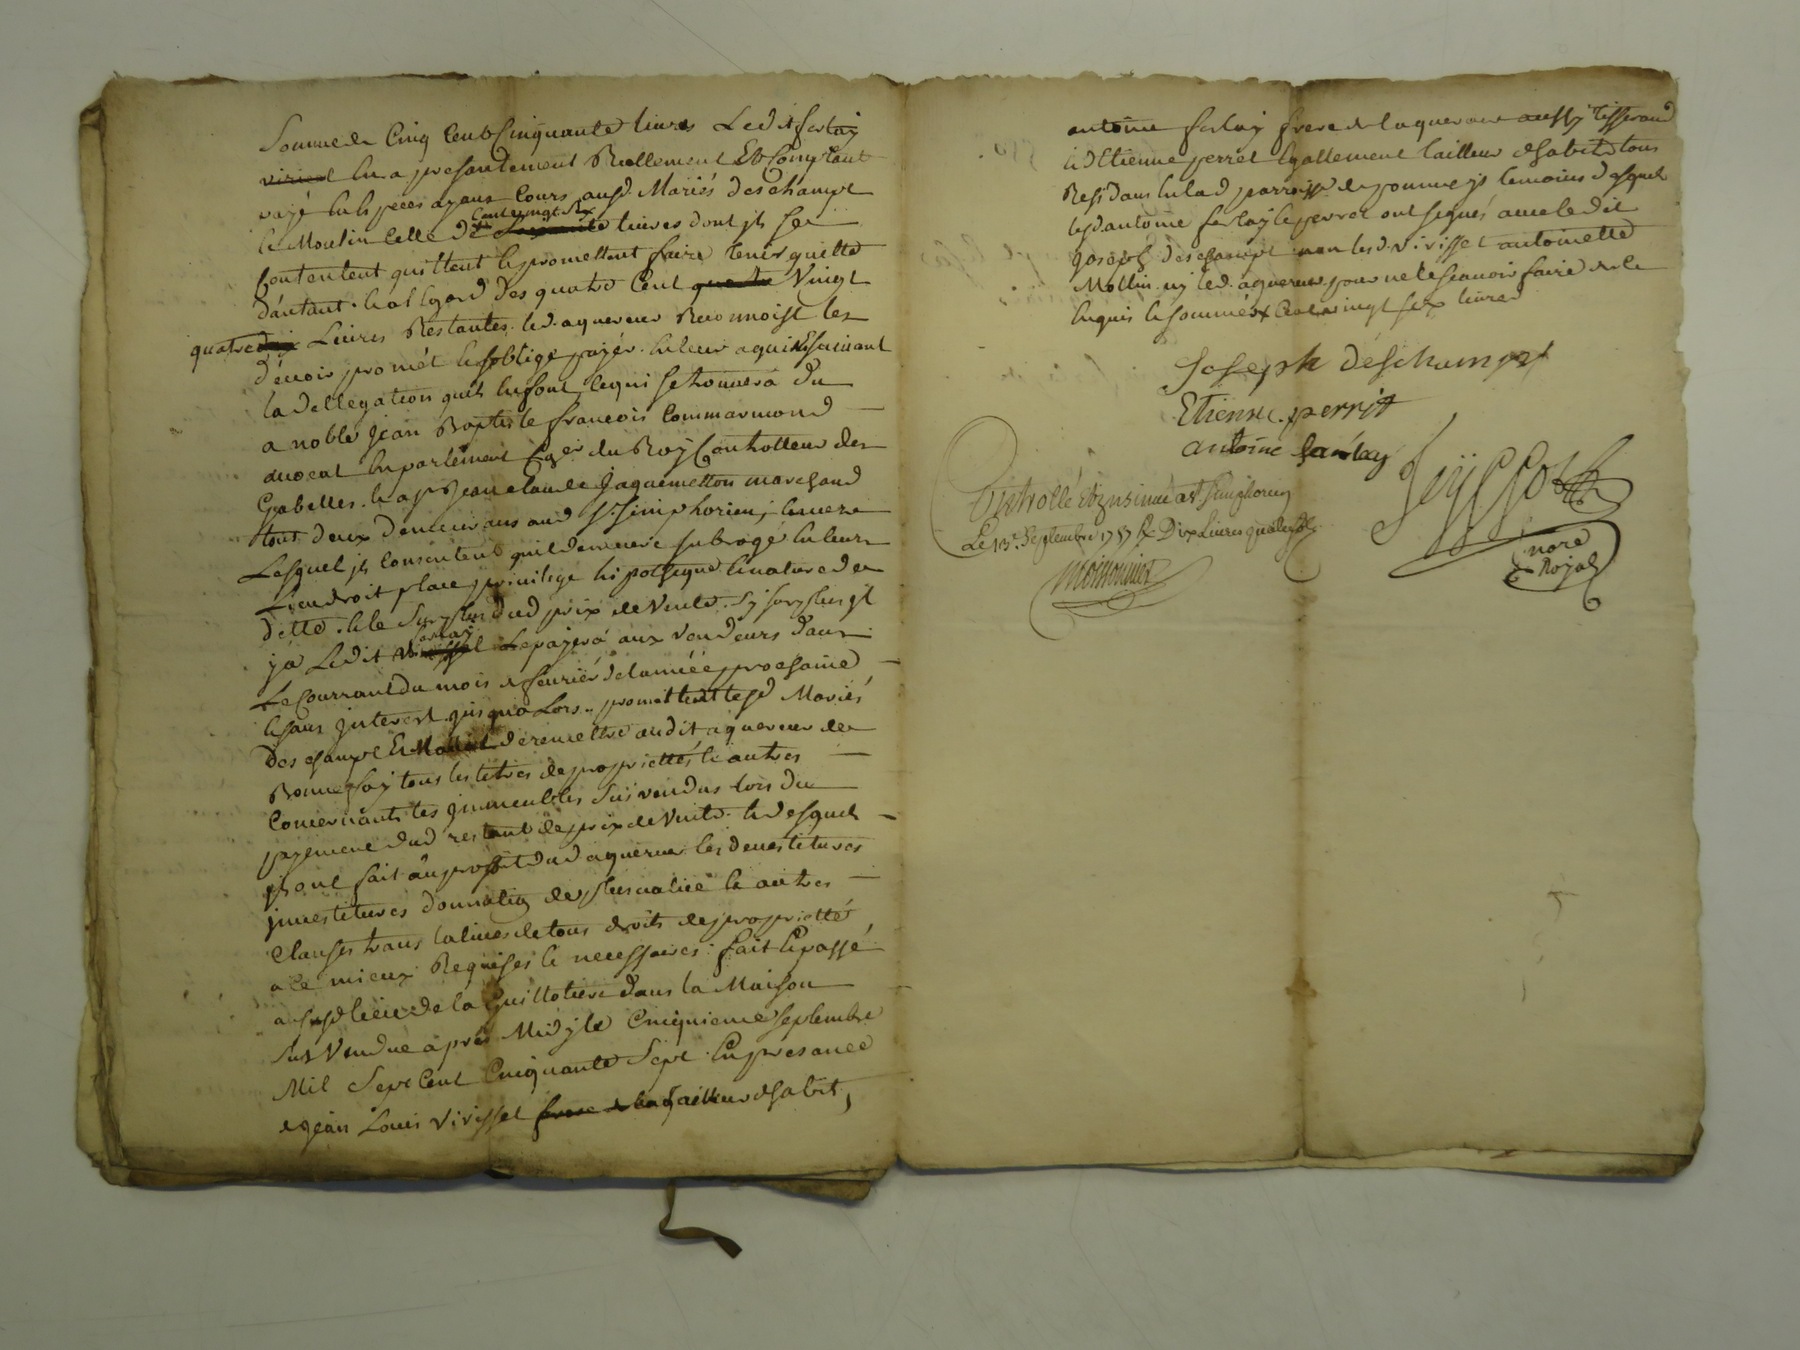 Somme de Cinq Cent Cinquante livres Ledit ferlay
viricel lu a presantement Reellement Et Comptant
payé En Especes ayans Cours ausd. Mariés deschampt
le Moulin Celle de Cent vingt six livres dont ils se
Contentent quittent le promettent faire tenir quitte
d'autant. le a l'Egard des quatre Cent Vingt
quatre Livres Restantes. led. aquereur Reconnoist les
devoir promét le soblige payér. En leur aquit Ensuivant
la dellegation quils luy font, lequi se trouvera du
a noble Jean Baptiste francois Commarmond
avocat En parlement du Roy Controlleur des
Gabelles. le a Sr. Jean claude Jaquemetton marchand
tous deux demeurans aud St. Simphorien, Envers
Lesquel ils Consentent quil demeure subrogé En leurs
Lieu droit place privilege hipotheque le nature de
dette. le le Surplus dud prix de Vente. Sy surplus il
ya Ledit ferlay Le payera aux vendeurs dans
Le Courrant du mois de fevriér de lannée prochaine
le sans Interest jusqua Lors.. promettent lesd Mariés
deschampt Et Mollin de remettre audit aquereur de
Bonne foy tous les titres de proprietté le autres
Concernants les Immeubles Sus vendus lors du
payement dud restant de prix de Vente. le desquels
ils ont fait au proffit dud aquereur les devestitures
jnvestitures donnation de plusvalue le autres
Clauses translatives de tous droits de proprietté
a ce mieux Requises le necessaires fait le passé
ausd. lieu de la Guillotiere dans la Maison
Sus Vendue après Midy le Cinquieme Septembre
Mil Sept Cent Cinquante Sept. En presance
de Jean Louis Virissel frere de la tailleur dhabit,
antoine ferlay frere de laquereur aussy tisserand
le dEtienne perret Egallement tailleur dhabit tous
Residans En lad parroisse de pommeys temoins desquels
lesd antoine ferlay le perret ont signés avec ledit
joseph deschampt non lesd. virissel antoinette
Mollin ny led. aquereur pour ne le scavoir faire de ce
Enquis le sommés Cent vingt six livres
Joseph déschampt
Etienne perrit
antoine farlay
nore
Royal
Controllé Et Insinué a St Simphorien
Le 13e. Septembre 1757 Rx Dix Livres quatre sols
moissonnier